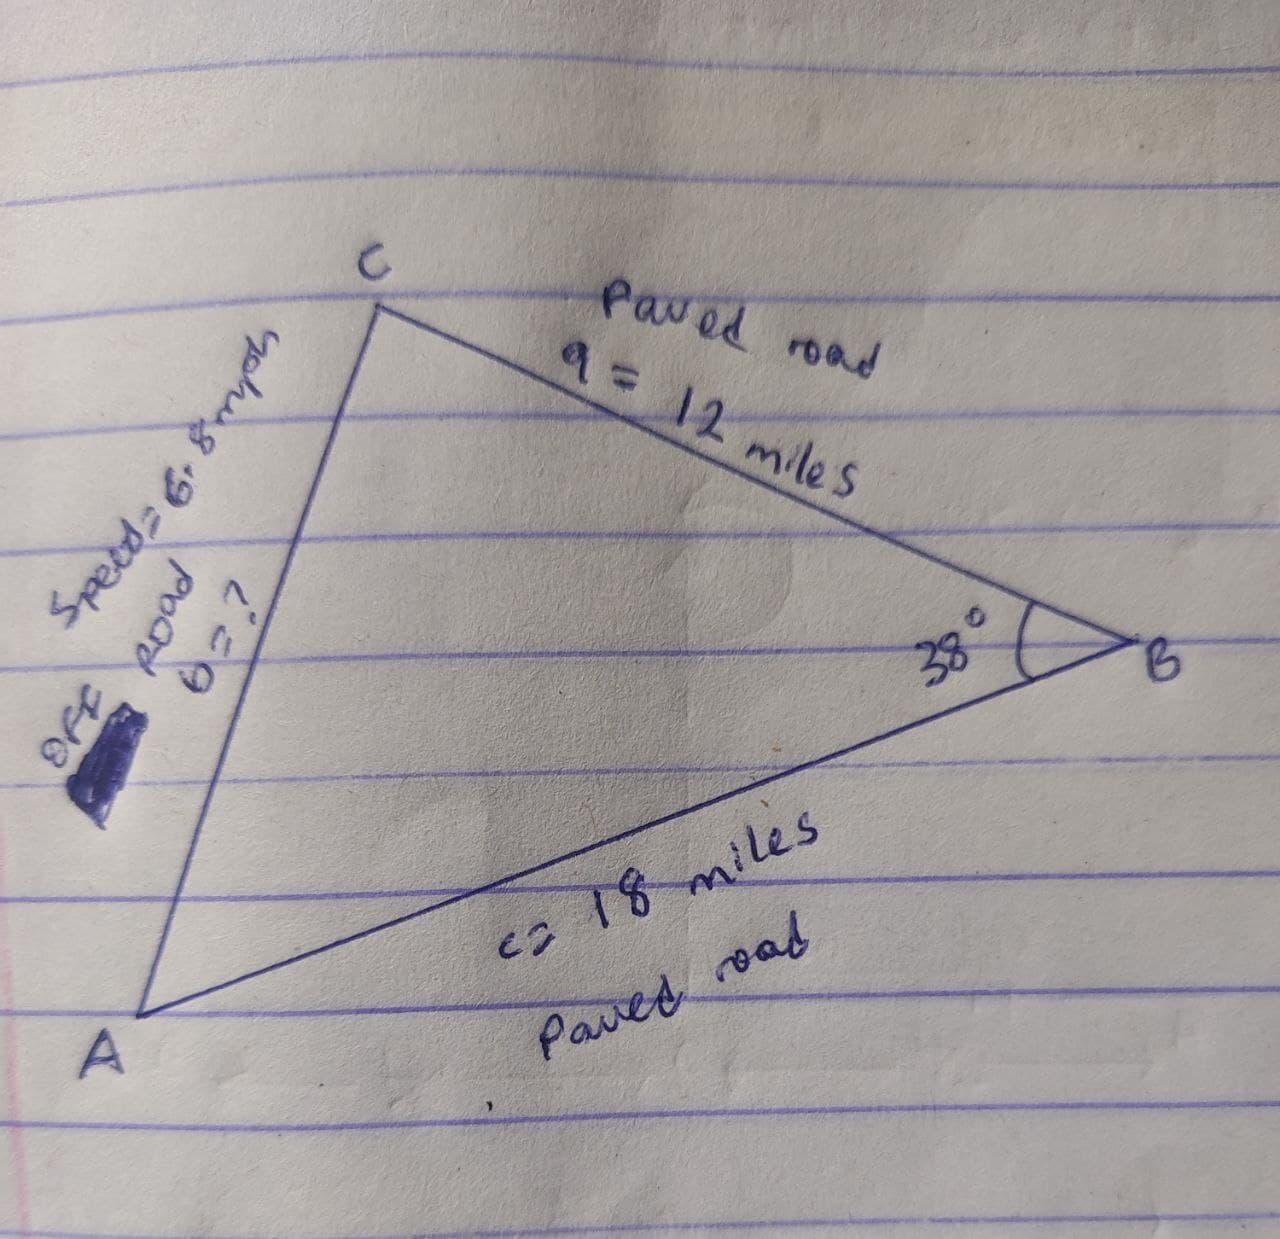 C
Paved road
a = 12 miles
Speed = 6.8 mph
OFF ROAD
b = ?
38°
B
c = 18 miles
Paved road
A